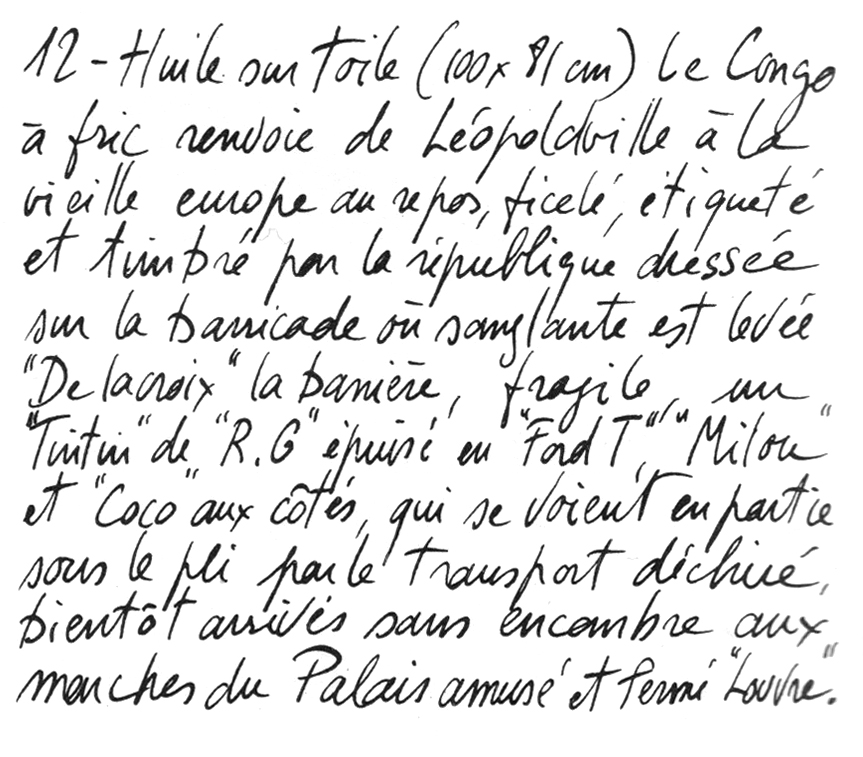 12 - Huile sur toile (100 x 81 cm) Le Congo
à fric renvoie de Léopoldville à la
vieille europe au repos, ficelé, étiqueté
et timbré par la république dressée
sur la barricade où sanglante est levée
"Delacroix" la bannière, fragile, un
"Tintin" de "R.G" épuisé en "Ford T", "Milou"
et "Coco" aux côtés, qui se voient en partie
sous le pli par le transport déchiré,
bientôt arrivés sans encombre aux
marches du Palais amusé et fermé "Louvre".